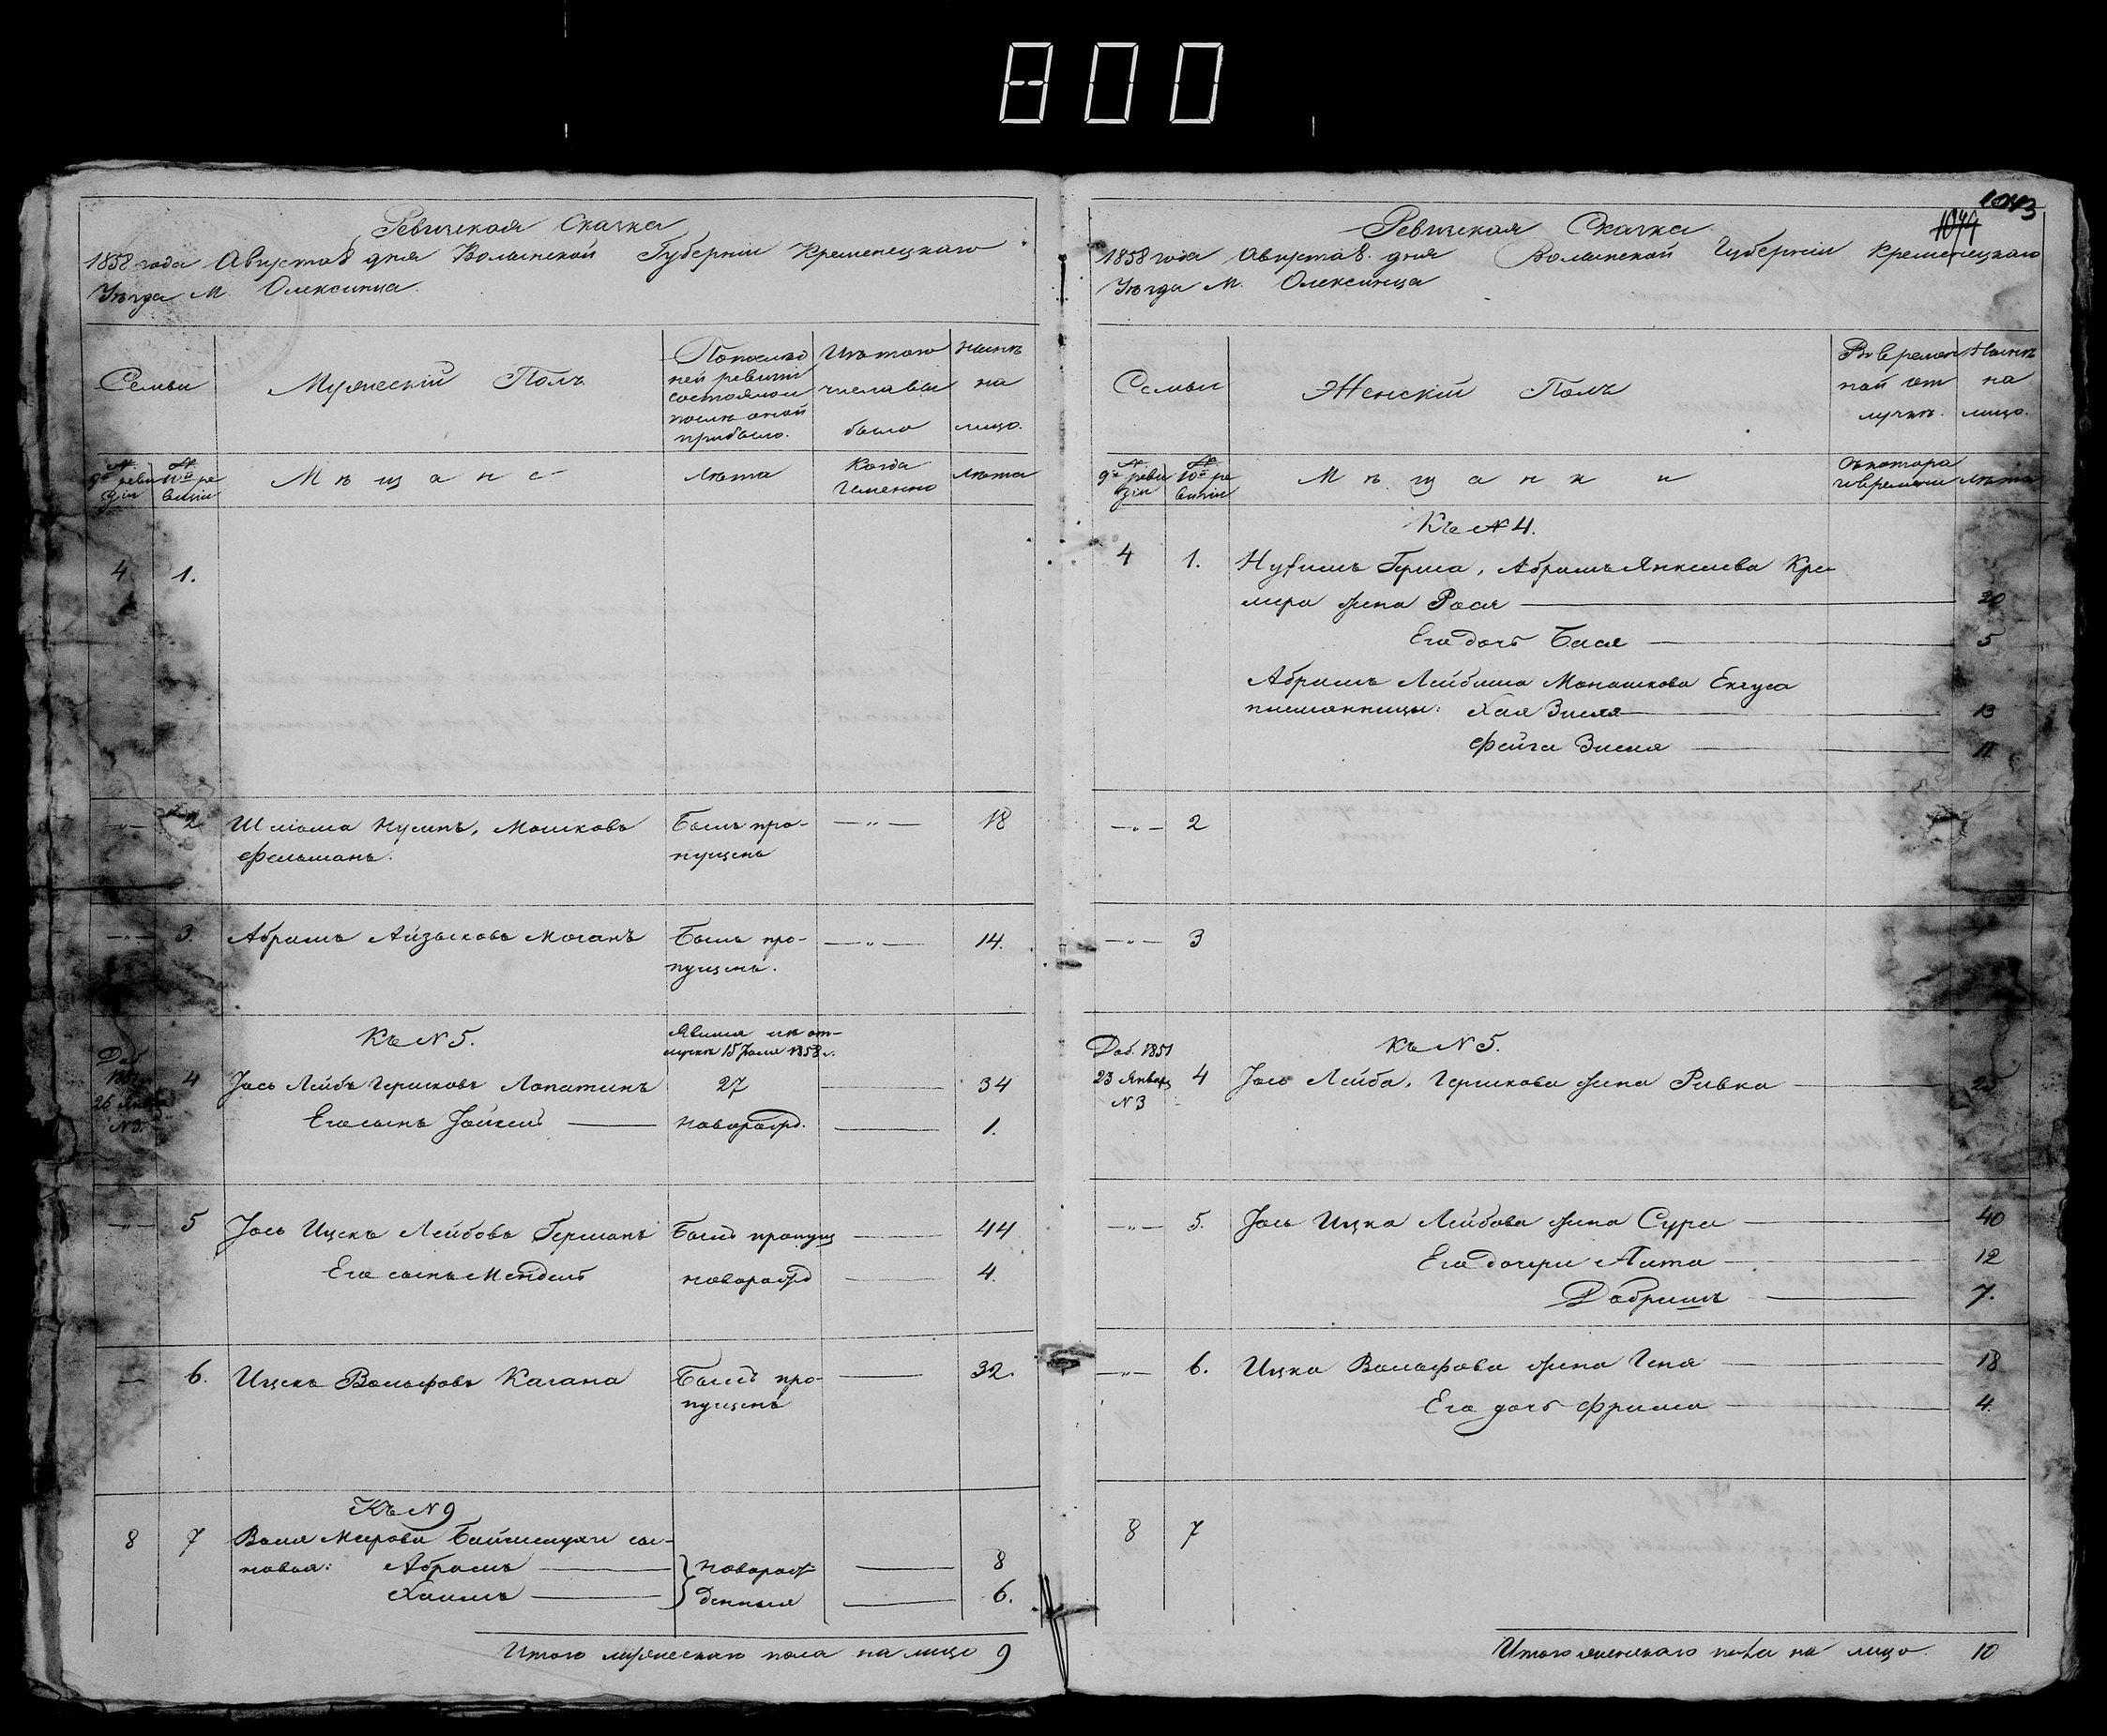 800
Ревизская Сказка
1858 года Августа 8 дня Волынской Губернии Кременецкаго
Уѣзда М. Олексинца.
Семьи
Мужескій Полъ
По послѣд
ней ревизіи
состояло и
послѣ оной
прибыло.
Изъ того
числа вы
было
Нынѣ
на
лицо.
№ 9й ревизіи
№ 10й ревизіи
Мѣщане
Лѣта
Когда
Именно
Лѣта
4 1.
2 Шліома Нусинъ, Мошковъ Былъ про- —„— 18
Фельманъ. пущенъ
—„— 3. Абрамъ Айзыковъ Коганъ Былъ про- —„— 14.
пущенъ.
Къ № 5. Явился изъ от-
лучки 15 Іюля 1858 г.
Доб.
26 Янв.
№ 3
4 Іось Лейбъ Гершковъ Лопатинъ 27 — 34
Его сынъ новорожд. — 1.
—„— 5 Іось Ицекъ Лейбовъ Германъ Былъ пропущ — 44
Его сынъ Мендель новорожд — 4.
— 6. Ицекъ Вольфовъ Кагана Былъ про- — 32.
пущенъ
Къ № 9
8 7 Меерова сы-
новья: Абрамъ — новорож — 8
Хаимъ — денные — 6.
Итого мужескаго пола на лицо 9
1043
1074
Ревизская Сказка
1858 года Августа 8. дня Волынской Губерніи Кременецкаго
Уѣзда М. Олексинца
Семьи
Женскій Полъ
Во времен
ной от
лучкѣ.
Нынѣ
на
лицо.
№ 9й ревизіи
№ 10й ревизіи
Мѣщанки
Съ котора
го времени
Лѣта
Къ № 4.
4 1. Абрамъ Янкелева Кре-
мера жена Рося — 20
Его дочь Бася — 5
Абрамъ Лейбиша Монашкова
племянницы: Хая Зисля — 13
Фейга Зисля — 11
—„— 2
—„— 3
Къ № 5.
Доб. 1851
23 Январь
№ 3
4 Іось Лейба, Гершкова жена Ривка — 25
—„— 5. Іось Ицка Лейбова жена Сура — 40
Его дочери — 12
Добришъ — 7.
—„— 6. Ицка Вольфова жена Геня — 18
Его дочь Фрима — 4.
8 7
Итого женскаго пола на лицо. 10